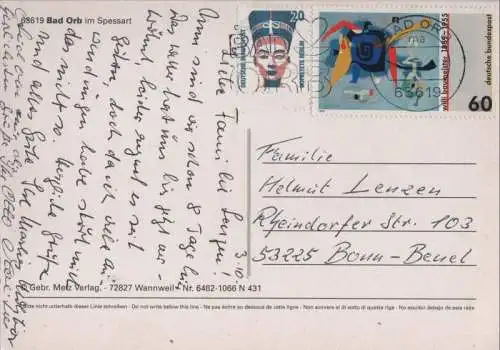 63619 Bad Orb im Spessart
3.10.
Liebe Familie Lenzen!
Nun sind wir schon 8 Tage hier
Das Wetter hat uns bis jetzt ver-
wöhnt, leider regnet es seit
gestern, doch da ich viele An-
wendungen habe stört mich
das nicht so. Herzliche Grüße
und alles Gute Ihre
20
DEUTSCHE BUNDESPOST
NOFRETETE BERLIN
BAD ORB
63619
willi baumeister 1889-1955
deutsche bundespost
60
Familie
Helmut Lenzen
Rheindorfer Str. 103
53225 Bonn-Beuel
Gebr. Metz Verlag · 72827 Wannweil · Nr. 6482-1066 N 431
Bitte nicht unterhalb dieser Linie schreiben · Do not write below this line · Ne pas écrire au dessous de cette ligne · Non scrivere al di sotto di questa riga · No escribir debajo de esta raya